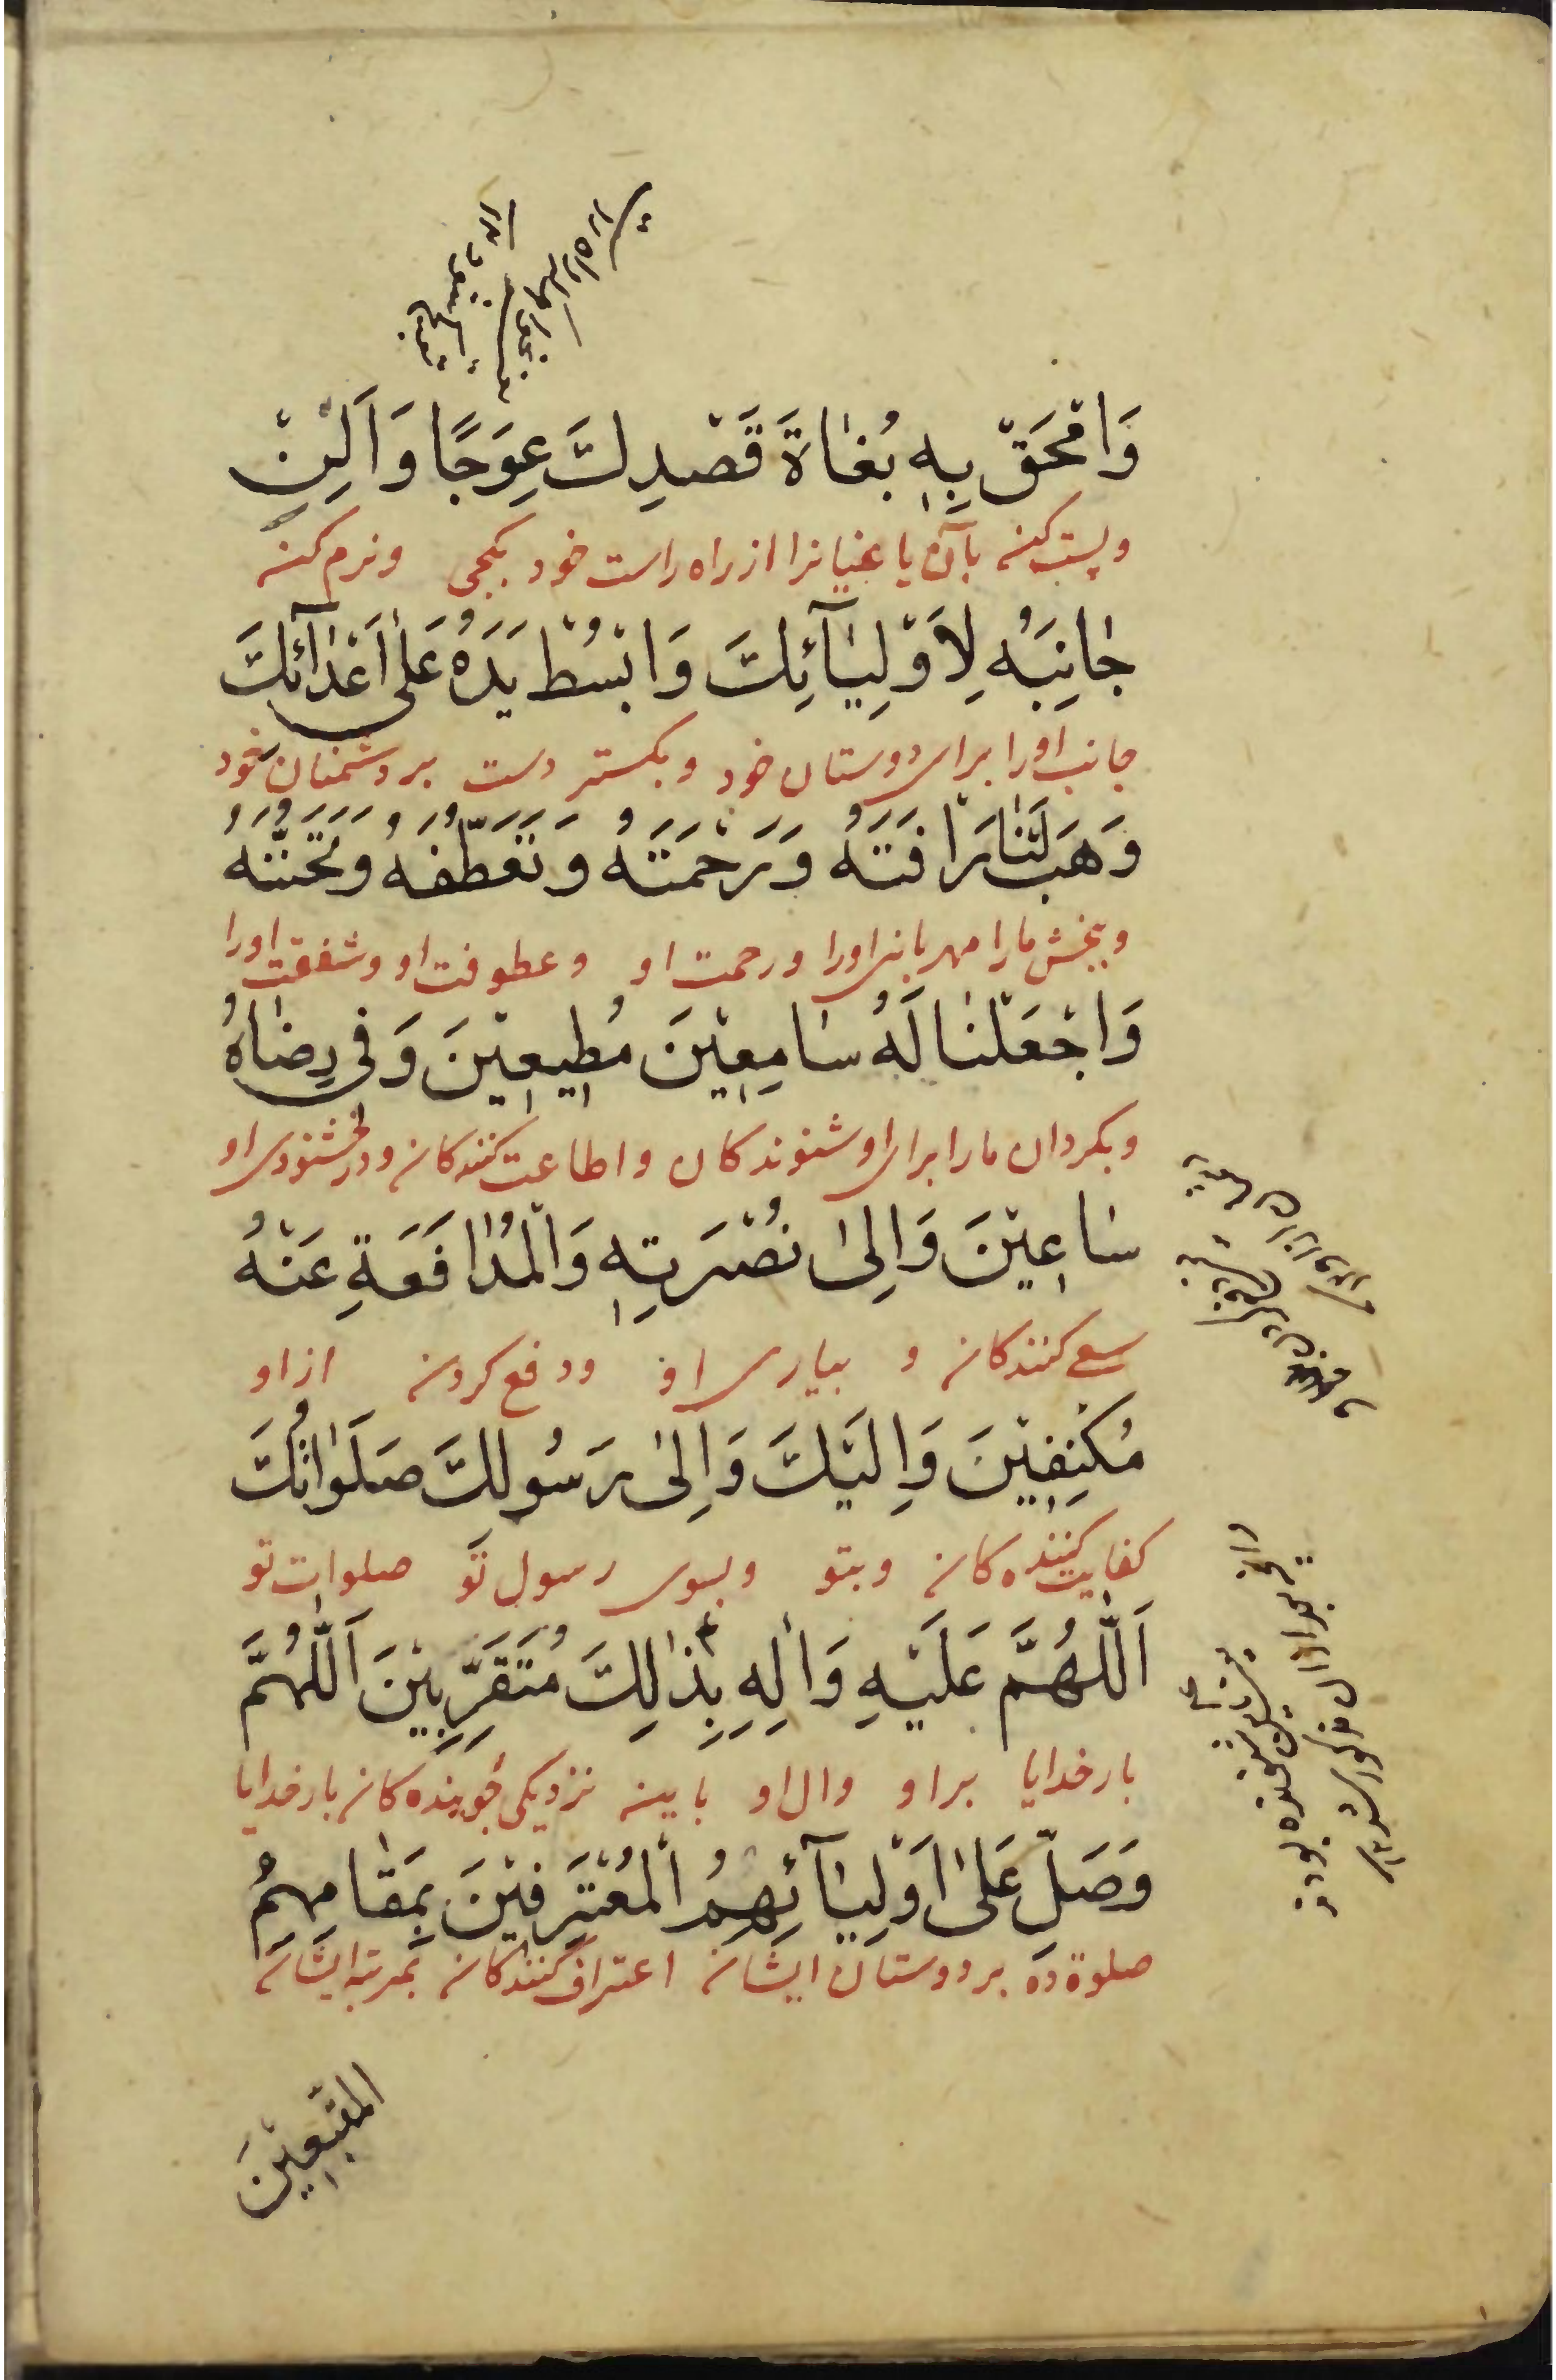 وَامْحَقْ بِهِ بُغَاةَ قَصْدِكَ عِوَجًا وَاَلِنْ
وپست کن بآن یاغیانرا از راه راست خود بکجی ونرم کن
جَانِبَهُ لِاَوْلِيَآئِكَ وَابْسُطْ يَدَهُ عَلٰى اَعْدَآئِكَ
جانب اورا برای دوستان خود وبکستر دست بر دشمنان خود
وَهَبْ لَنَا رَاْفَتَهُ وَرَحْمَتَهُ وَتَعَطُّفَهُ وَتَحَنُّنَهُ
وببخش مارا مهربانی اورا ورحمت او وعطوفت او وشفقت اورا
وَاجْعَلْنَا لَهُ سَامِعِيْنَ مُطِيعِيْنَ وَفِى رِضَاهُ
وبکردان مارا برای او شنوندکان واطاعت کنندکان ودر خشنودی او
سَاعِيْنَ وَاِلٰى نُصْرَتِهِ وَالْمُدَافَعَةِ عَنْهُ
سعی کنندکان و بیاری او ودفع کردن از او
مُكْنِفِيْنَ وَاِلَيْكَ وَاِلٰى رَسُولِكَ صَلَوَاتُكَ
کفایت کننده کان وبتو وبسوی رسول تو صلوات تو
اَللّٰهُمَّ عَلَيْهِ وَاٰلِهِ بِذٰلِكَ مُتَقَرِّبِيْنَ اَللّٰهُمَّ
بار خدایا بر او وال او باین نزدیکی جوینده کان بار خدایا
وَصَلِّ عَلٰى اَوْلِيَآئِهِمُ الْمُعْتَرِفِيْنَ بِمَقَامِهِمُ
صلوة ده بر دوستان ایشان اعتراف کنندکان بمرتبه ایشان
المتَّبِعِيْنَ